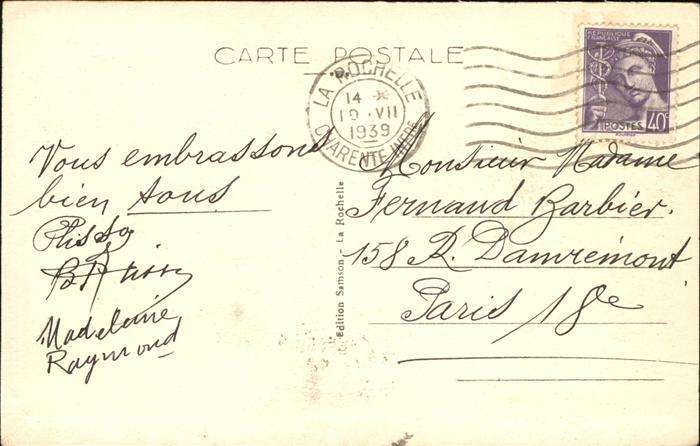 CARTE POSTALE
LA ROCHELLE
14
19 · VII
1939
CHARENTE-INFRE
RÉPUBLIQUE FRANÇAISE
POSTES
40c
Vous embrassons
bien tous
Madeleine
Raymond
Edition Samson - La Rochelle
Monsieur Madame
Fernand Barbier.
158 R. Damrémont
Paris 18e